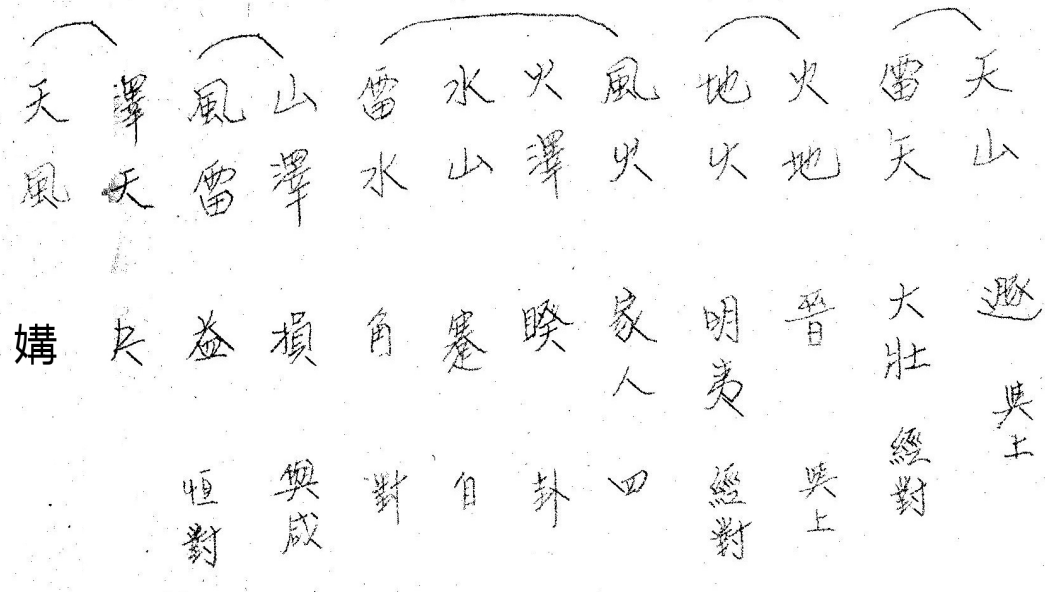 天山 遯 與上
雷天 大壯 經對
火地 晋 與上
地火 明夷 經對
風火 家人 四
火澤 睽 卦
水山 蹇 自
雷水 角 對
山澤 損 與咸
風雷 益 恒對
澤天 夬
天風 媾